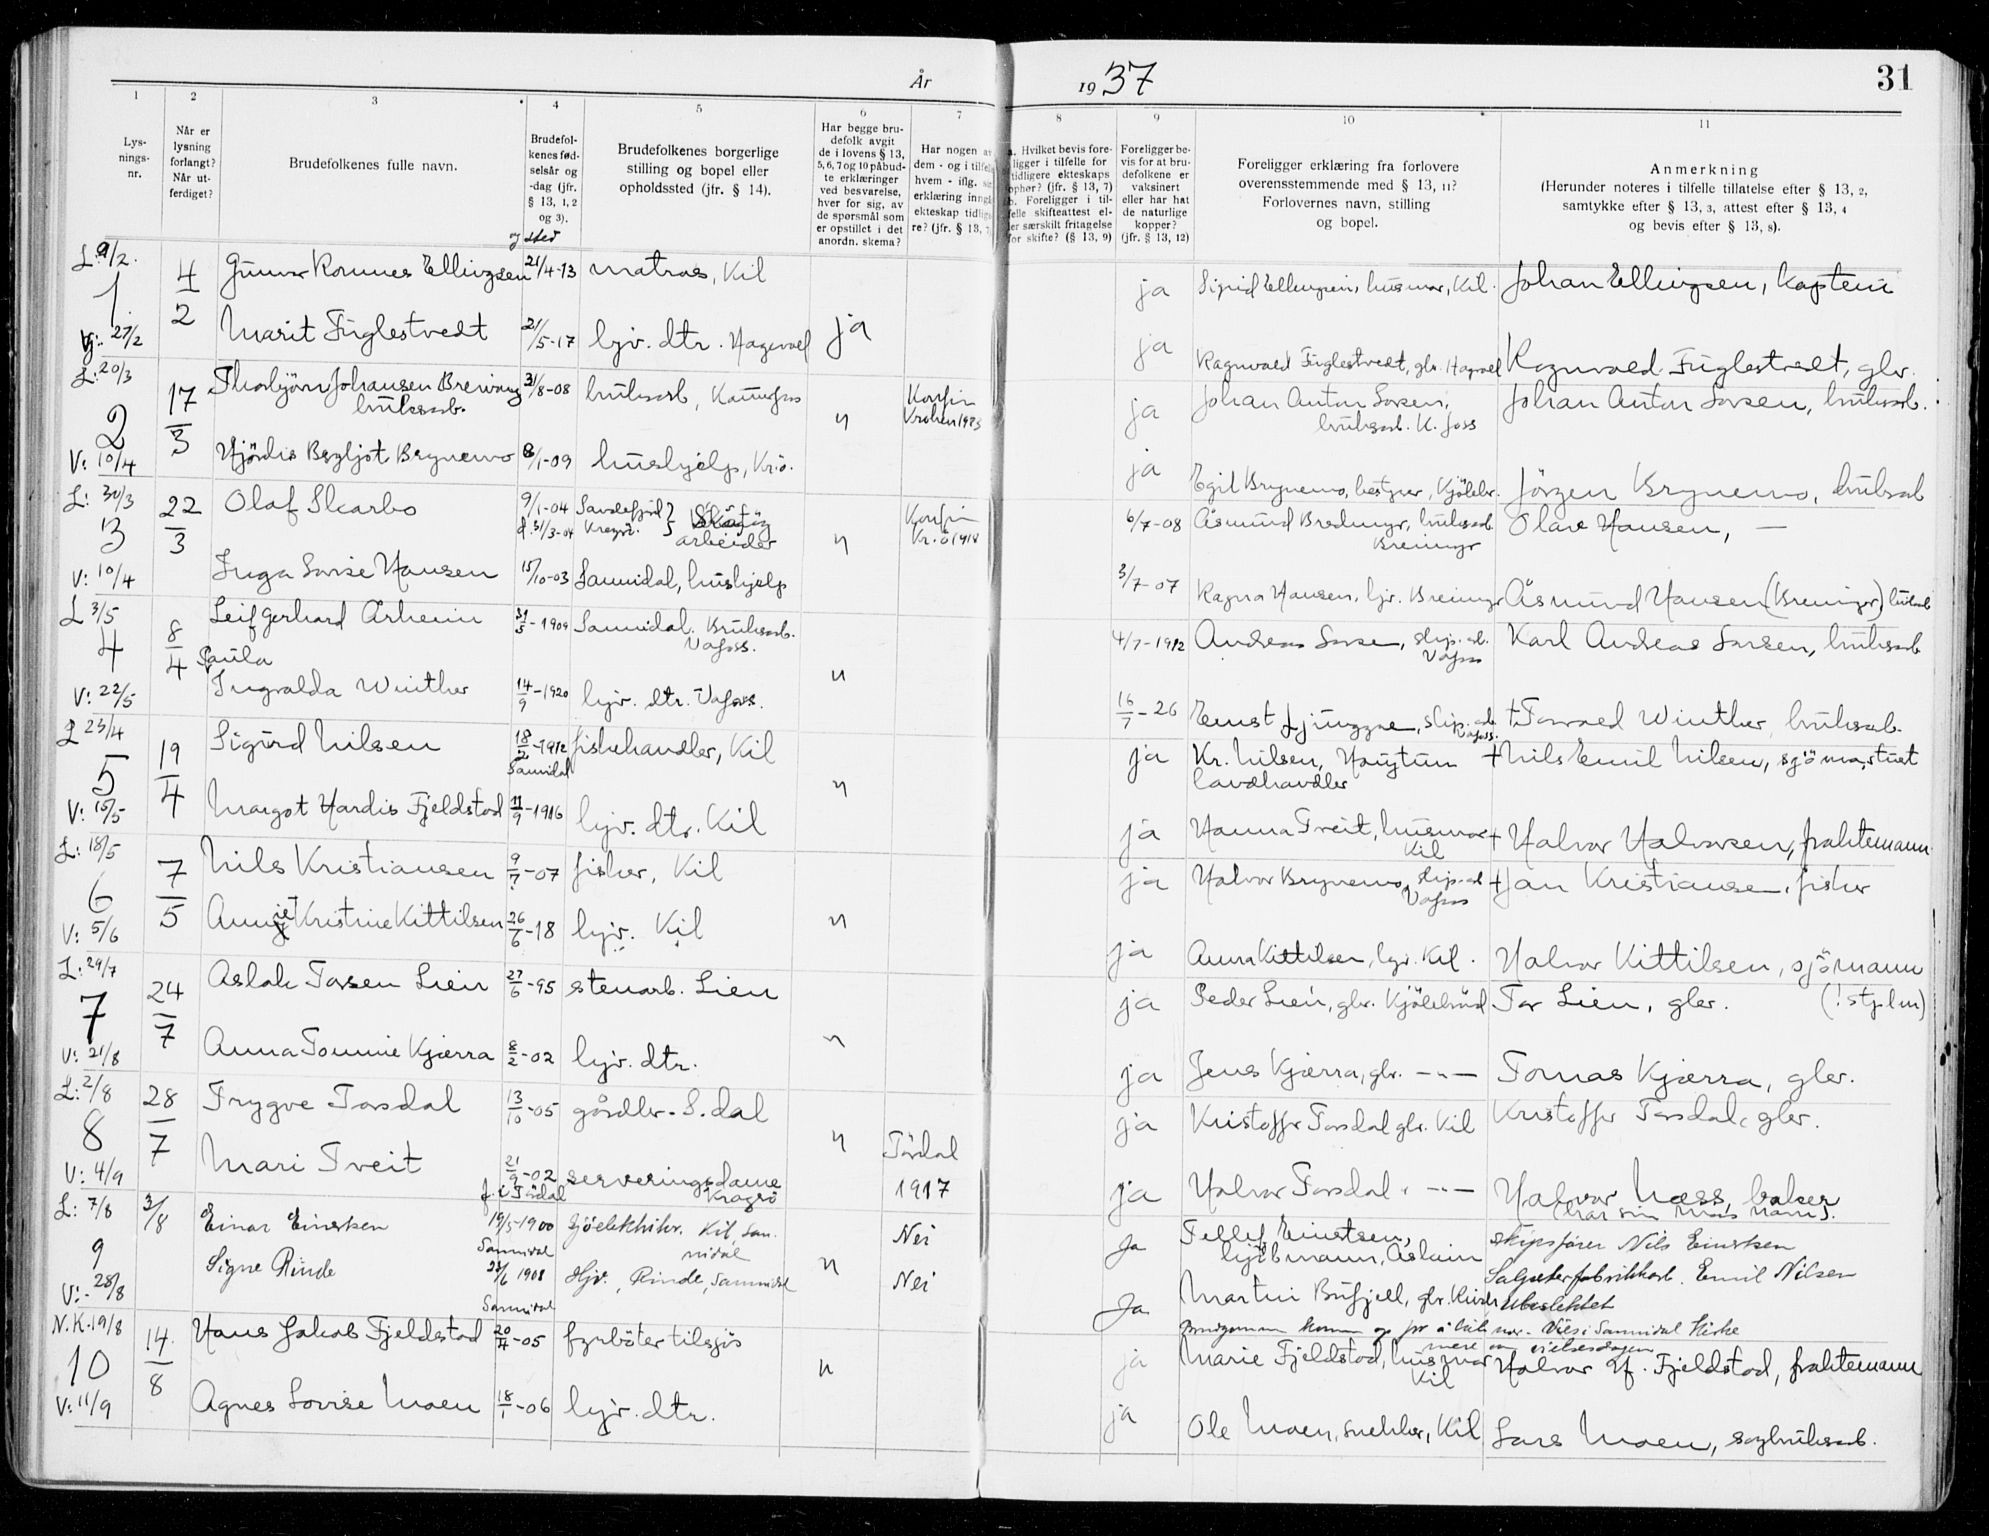 År 1937
31
1
2
3
4
5
6
7
8
9
10
11
Lys-
nings-
nr.
Når er
lysning
forlangt?
Når ut-
ferdiget?
Brudefolkenes fulle navn.
Brudefol-
kenes fød-
selsår og
-dag (jfr.
§ 13, 1, 2
og 3).
og sted
Brudefolkenes borgerlige
stilling og bopel eller
opholdssted (jfr. § 14).
Har begge bru-
defolk avgit
de i lovens § 13,
5, 6, 7 og 10 påbud-
te erklæringer
ved besvarelse,
hver for sig, av
de spørsmål som
er opstillet i det
anordn. skema?
Har nogen av
dem - og i tilfelle
hvem - iflg.
erklæring inngå
ekteskap tidlige
re? (jfr. § 13, 7
a. Hvilket bevis fore-
ligger i tilfelle for
tidligere ekteskaps
ophør? (jfr. § 13, 7)
b. Foreligger i til-
felle skifteattest el-
ler særskilt fritagelse
for skifte? (§ 13, 9)
Foreligger be-
vis for at bru-
defolkene er
vaksinert
eller har hat
de naturlige
kopper?
(jfr. § 13, 12)
Foreligger erklæring fra forlovere
overensstemmende med § 13, 11?
Forlovernes navn, stilling
og bopel.
Anmerkning
(Herunder noteres i tilfelle tillatelse efter § 13, 2,
samtykke efter § 13, 3, attest efter § 13, 4
og bevis efter § 13, 8).
L: 9/2.
1.
V: 27/2
4/2
Gunnar Romnes Ellingsen 21/4-13 matros, Kil
ja Sigrid Ellingsen, husmor, Kil. Johan Ellingsen, Kaptein
Marit Fuglestvedt 21/5-17 hjv. dtr. Hagevoll ja
ja Ragnvald Fuglestvedt, gbr. Ragnvald Fuglestvedt, gbr.
L: 20/3
2
V: 10/4
17/3
Thorbjørn Johansen 31/8-08 bruksarb, Kammerfoss
bruksarb.
ja Johan Anton Larsen, Johan Anton Larsen, bruksarb.
bruksarb. K. foss
Hjördis Bergljot Brynemo 8/1-09 hushjelp, Kr.ö.
ja Egil Brynemo, bestyrer, Kjölebr. Jörgen Brynemo, bruksarb
L: 30/3
3
V: 10/4
22/3
Olaf Skarbo 9/1-04 Sandefjord
d. 31/3-04 Kragrö. arbeider
6/7-08 Åsmund Breidungr, bruksarb. Olav Hansen, —
Inga Lovise Hansen 15/10-03 Sannidal, hushjelp
3/7-07 Ragna Hansen, hjv. Åsmund Hansen
L 3/5
4
V: 22/5
8/4
Leif Gerhard 31/5-1909 Sannidal. Bruksarb.
Vafoss.
4/7-1912 Andreas slip. arb. Karl Andreas Larsen, bruksarb
Vafoss
Paula
Ingvalda Winther 14/9-1920 hjv. dtr. Vafoss.
16/7-26 Ernst Ljunggren, slip. arb. + Torvald Winther, bruksarb.
L 23/4
5
V: 15/5
19/4
Sigurd Nilsen 18/2-1912 fiskehandler, Kil
Sannidal
ja Kr. Nilsen, Haugtun + Nils Emil Nilsen, sjömann
landhandler
Margot Hardis Fjeldstad 11/9-1916 hjv. dtr. Kil
ja Hanna Treit, husmor + Halvor Halvorsen, fraktemann.
Kil
L: 18/5
6
V: 5/6
7/5
Nils Kristiansen 9/7-07 fisker, Kil
ja Halvor Brynemo, slip. arb. + Jan Kristiansen, fisker
Vafoss
Annie Kristine Kittilsen 26/6-18 hjv. Kil
ja Anna Kittilsen, hjv. Kil. Halvor Kittilsen, sjömann
L: 29/7
7
V: 21/8
24/7
Aslak Torsen Lien 27/6-95 stenarb. Lien
ja Peder Lien, gbr. Kjölebrönd Tor Lien, gbr.
Anna Tomine Kjærra 8/2-02 hjv. dtr.
ja Jens Kjærra, gbr. —"— Tomas Kjærra, gbr.
L: 2/8
8
V: 4/9
28/7
Trygve Torsdal 13/10-05 gårdbr. S.dal
ja Kristoffer Torsdal gbr. Kil Kristoffer Torsdal, gbr.
Mari Treit 21/9-02 serveringsdame Tördal
f. i Tördal Kragrö 1917
ja Halvor Torsdal, —"— Halvor Næss, baker
(har sin mors navn).
L: 7/8
9
V: 28/8
3/8
Einar Eineksen 19/5-1900 Kil, San- Nei
Sannidal nidal
Ja Tellef skipsfører Nils
Aslain Salpeterfabrikkarb. Emil Nilsen
Signe Rinde 23/6 1908 Hjv., Rinde, Sannidal Nei
Sannidal
Ja Martin Bufjell, gbr. Ubeslektet
Vies i Sannidal Kirke
N.K. 19/8
10
V: 11/9
14/8
Hans Jakob Fjeldstad 20/4-05 fyrböter tilsjös
ja Marie Fjeldstad, husmor Halvor H. Fjeldstad, fraktemann
Kil
Agnes Lovise Moen 18/1-06 hjv. dtr.
ja Ole Moen, snekker, Kil Lars Moen, sagbruksarb.